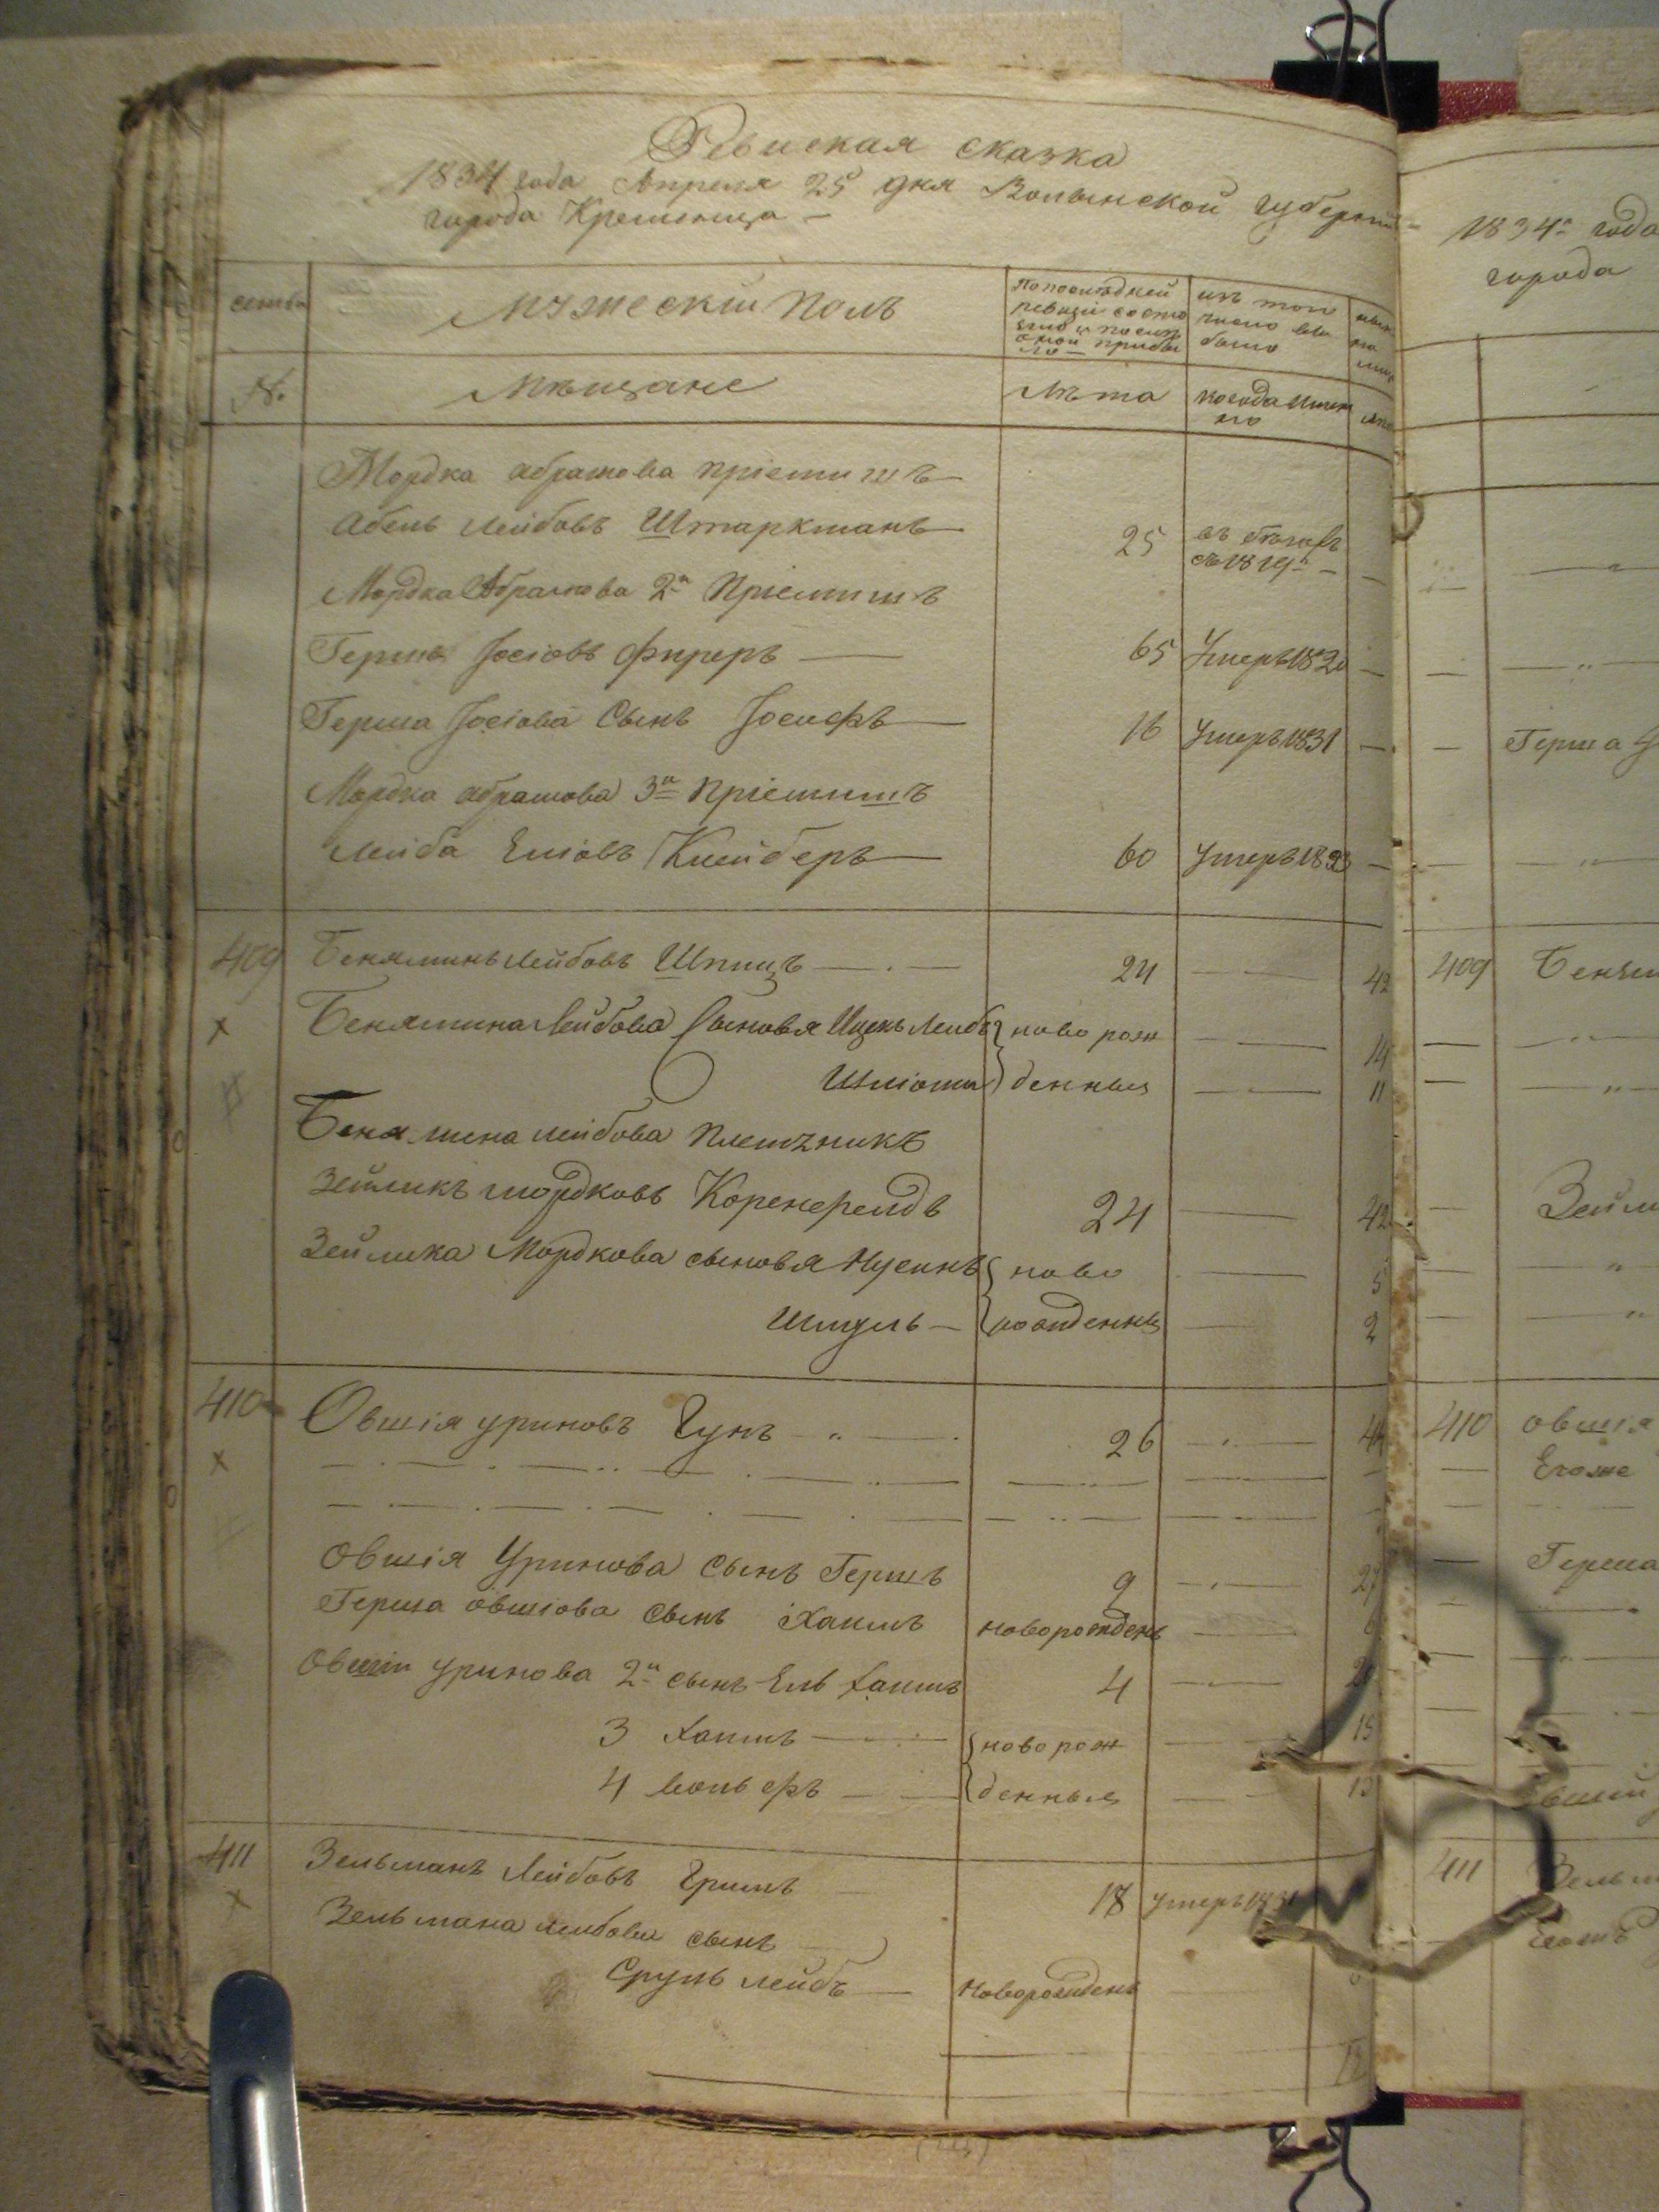 Ревиская сказка
1834 года Апреля 25 дня Волынской губерніи
города Кременца
семьи
Мужескій Полъ
По последней ревизіи состояло и после оной прибыло
изъ того числа выбыло
№
Мѣщане
Лѣта
когда именно
Мордка абрамова пріемишъ
Абель Лейбовъ Штаркманъ 25 въ бѣгахъ
съ 1819
Мордка Абрамова 2й Пріемишъ
Гершъ Іосіовъ Фиреръ 65 Умеръ 1820
Герша Іосіова Сынъ Іосифъ 16 Умеръ 1831
Мордка абрамова 3й пріемишъ
Лейба Еліовъ Клейберъ 60 Умеръ 1823
409 Беняминъ Лейбовъ Шпицъ 24 42
Бенямина Лейбова Сыновя Ицекъ Лейбъ новорож 14
Шліома денныи 11
Бенямина лейбова племэникъ
Зейликъ мордковъ Коренфелдъ 24 42
Зейлика Мордкова сыновя Нусинъ ново 5
Шмуль рожденны 2
410 Овшія уриновъ Гунъ 26 44
Овшія Уринова сынъ Гершъ 9 27
Герша овшіова сынъ Хаимъ новорожденъ
Овшіи уринова 2й сынъ Ель Хаимъ 4
3 Хаимъ новорож 15
4 вольфъ денныи 13
411 Зельманъ Лейбовъ Гримъ 18 умеръ 1831
Зельмана лейбова сынъ
Сруль лейбъ Новорожденъ
1834 года
города
Герша
409 Беням
Зейли
410 овшія
Егоже
Герша
411 Зельм